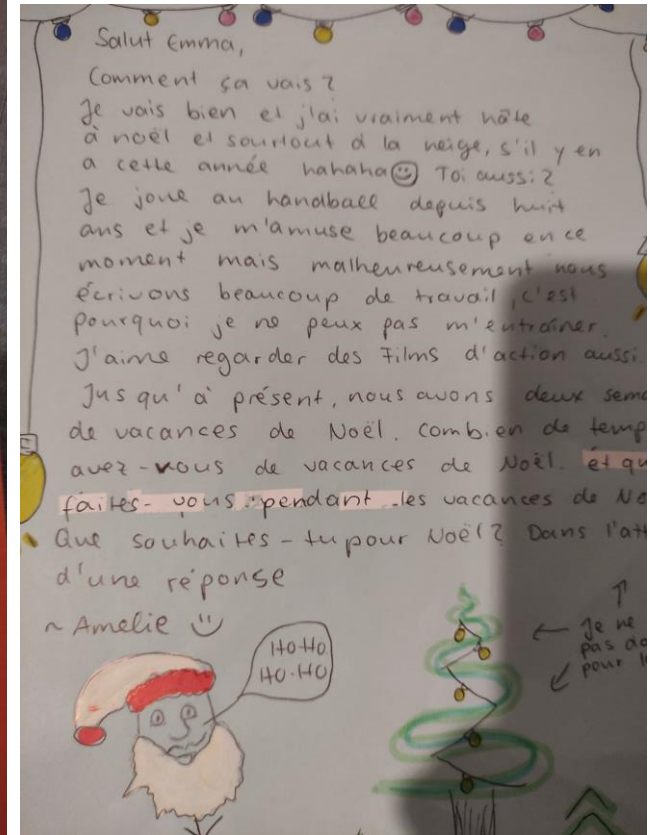 Salut Emma,
Comment ça vais?
Je vais bien et j'ai vraiment hâte
à noël et sourtout à la neige, s'il y en
a cette année hahaha Toi aussi?
Je joue au handball depuis huit
ans et je m'amuse beaucoup en ce
moment mais malheureusement nous
écrivons beaucoup de travail, c'est
pourquoi je ne peux pas m'entraîner.
J'aime regarder des Films d'action aussi.
Jus qu'à présent, nous avons deux
de vacances de Noël. combien de
avez-vous de vacances de Noël. et
faites-vous pendant les vacances de
Que souhaites-tu pour Noël? Dans
d'une réponse
~ Amelie
HO HO
HO-HO
Je ne
pas
pour